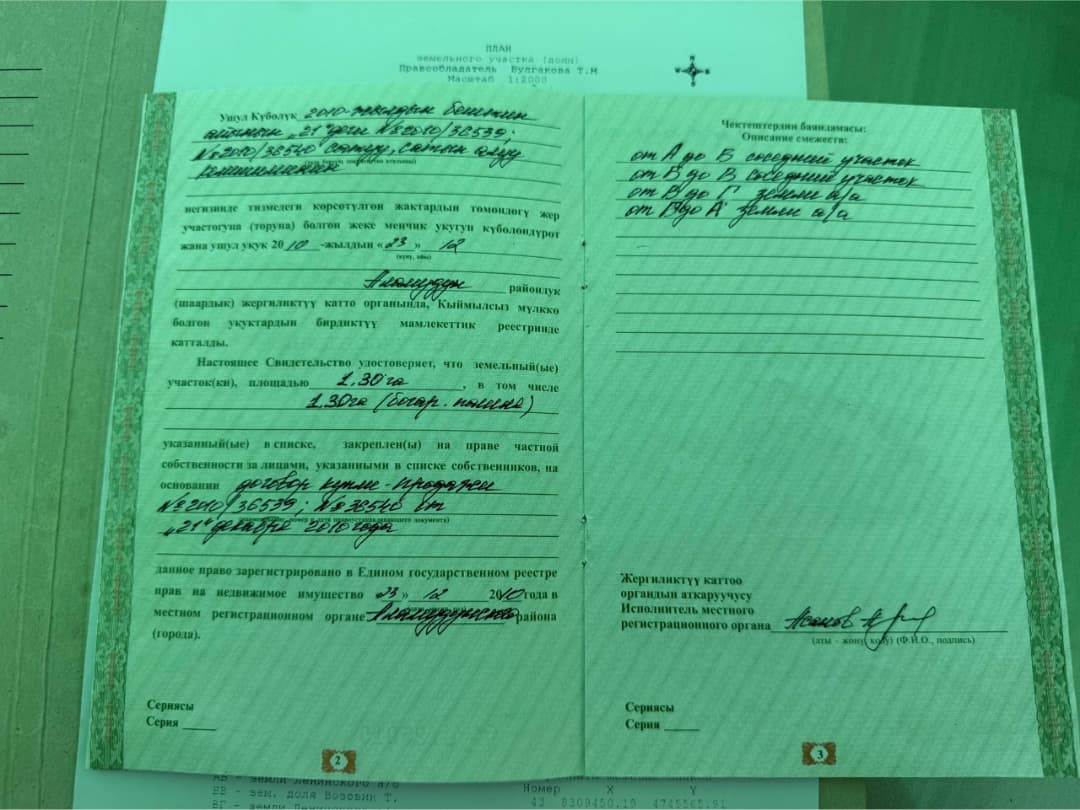 ПЛАН
земельного участка (доли)
Правообладатель Булгакова Т.М
Масштаб 1:2000
Ушул Күбөлүк 2010-жылдын бештин
айынын „21" деги №2010/36539;
№2010/36540 сатуу, сатып алуу
келишиминин
негизинде тизмедеги көрсөтүлгөн жактардын төмөндөгү жер
участогуна (торуна) болгон жеке менчик укугун күбөлөндүрөт
жана ушул укук 2010-жылдын «23» 12
(күнү, айы)
Аламудун райондук
(шаардык) жергиликтүү катто органында, Кыймылсыз мүлккө
болгон укуктардын бирдиктүү мамлекеттик реестринде
катталды.
Настоящее Свидетельство удостоверяет, что земельный(ые)
участок(ки), площадью 1,30 га, в том числе
1,30га (богар. пашня)
указанный(ые) в списке, закреплен(ы) на праве частной
собственности за лицами, указанными в списке собственников, на
основании договор купли-продажи
№2010/36539; №36540 от
„21" декабря 2010 года
данное право зарегистрировано в Едином государственном реестре
прав на недвижимое имущество 23» 12 2010 года в
местном регистрационном органе Аламудунского района
(города).
Сериясы
Серия ____
2
Чектештердин баяндамасы:
Описание смежеств:
от А до Б соседний участок
от Б до В соседний участок
от В до Г земли а/а
от до А земли а/а
Жергиликтүү каттоо
органдын аткаруучусу
Исполнитель местного
регистрационного органа Асанов
(аты - жөнү, колу) (Ф.И.О., подпись)
Сериясы
Серия ____
3
АБ - земли Ленинского а/о
БВ - зем. доля Возовик Т.
ВГ - земли
Номер X Y
43 8309450.10 4745565.91